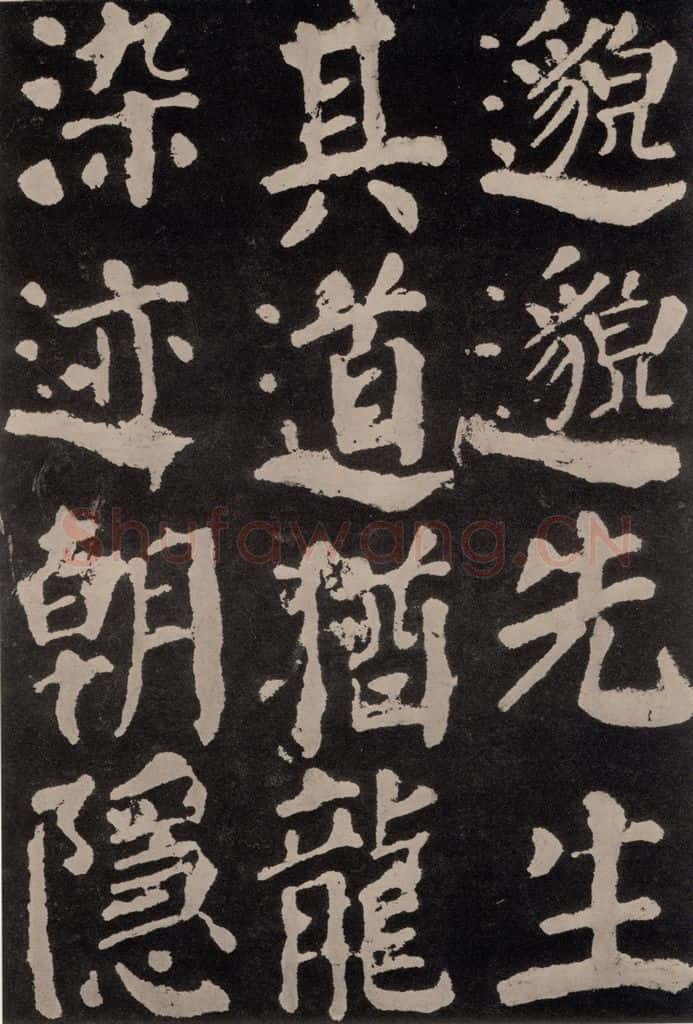 邈邈先生
其道猶龍
染迹朝隱
Shufawang.CN